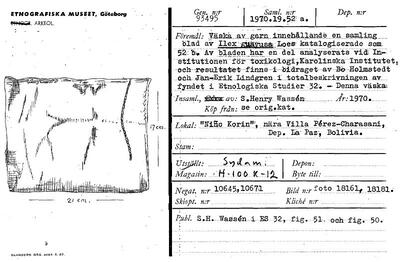 ETNOGRAFISKA MUSEET, Göteborg
ARKEOL.
17 cm.
21 cm.
Gen. nr 93495
Saml. nr 1970.19.52 a.
Dep. nr
Föremål: Väska av garn innehållande en samling
blad av Ilex guayusa Loes katalogiserade som
52 b. Av bladen har en del analyserats vid In-
stitutionen för toxikologi, Karolinska Institutet,
och resultatet finns i bidraget av Bo Holmstedt
och Jan-Erik Lindgren i totalbeskrivningen av
fyndet i Etnologiska Studier 32. - Denna väska
Insaml. av: S.Henry Wassén År: 1970.
Köp från: se orig.kat.
Lokal: "Niño Korin", nära Villa Pérez-Charasani,
Dep. La Paz, Bolivia.
Stam:
Utställt: Sydam: Depon:
Magasin: H-100 K-12 Byte till:
Negat. nr 10645,10671 Bild nr foto 18161, 18181.
Skiopt. nr Kliché nr
Publ. S.H. Wassén i ES 32, fig. 51. och fig. 50.